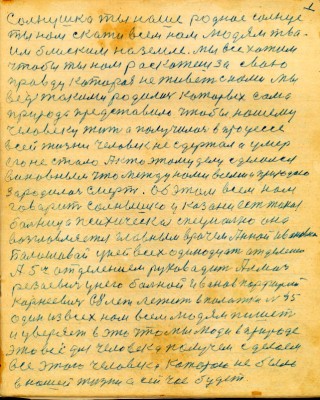 1
Солнушка ты наше родное солнце
ты нам скати всем нам людям тва-
им блиским на земле. мы все хотим
чтобы ты нам раскажи за сваю
правду катарая не живет с нами мы
все такими родилися которых сама
природа представила чтобы нашему
человеку жить а получилась в процессе
всей жизни человек не сдержал а умер
его не стало А кто этому делу сделался
виновным что между нами всеми в природе
зародилася смерт. Об этом всем нам
гаварит солнышко у казани ест такая
балница психическая специально она
возглавляется главным врачем Анной Ивановной
у ней всех одиннодцат отделений
А 5м отделением руководит
у него балной Иванов парфирий
Карнеевич лежит в палати N 35
один из всех нам всем людям пишет
и уверяет в это что мы люди в природе
это всё для человека получем сделаем
все этого человека каторого не было
в нашей жизни а сейчас будет.